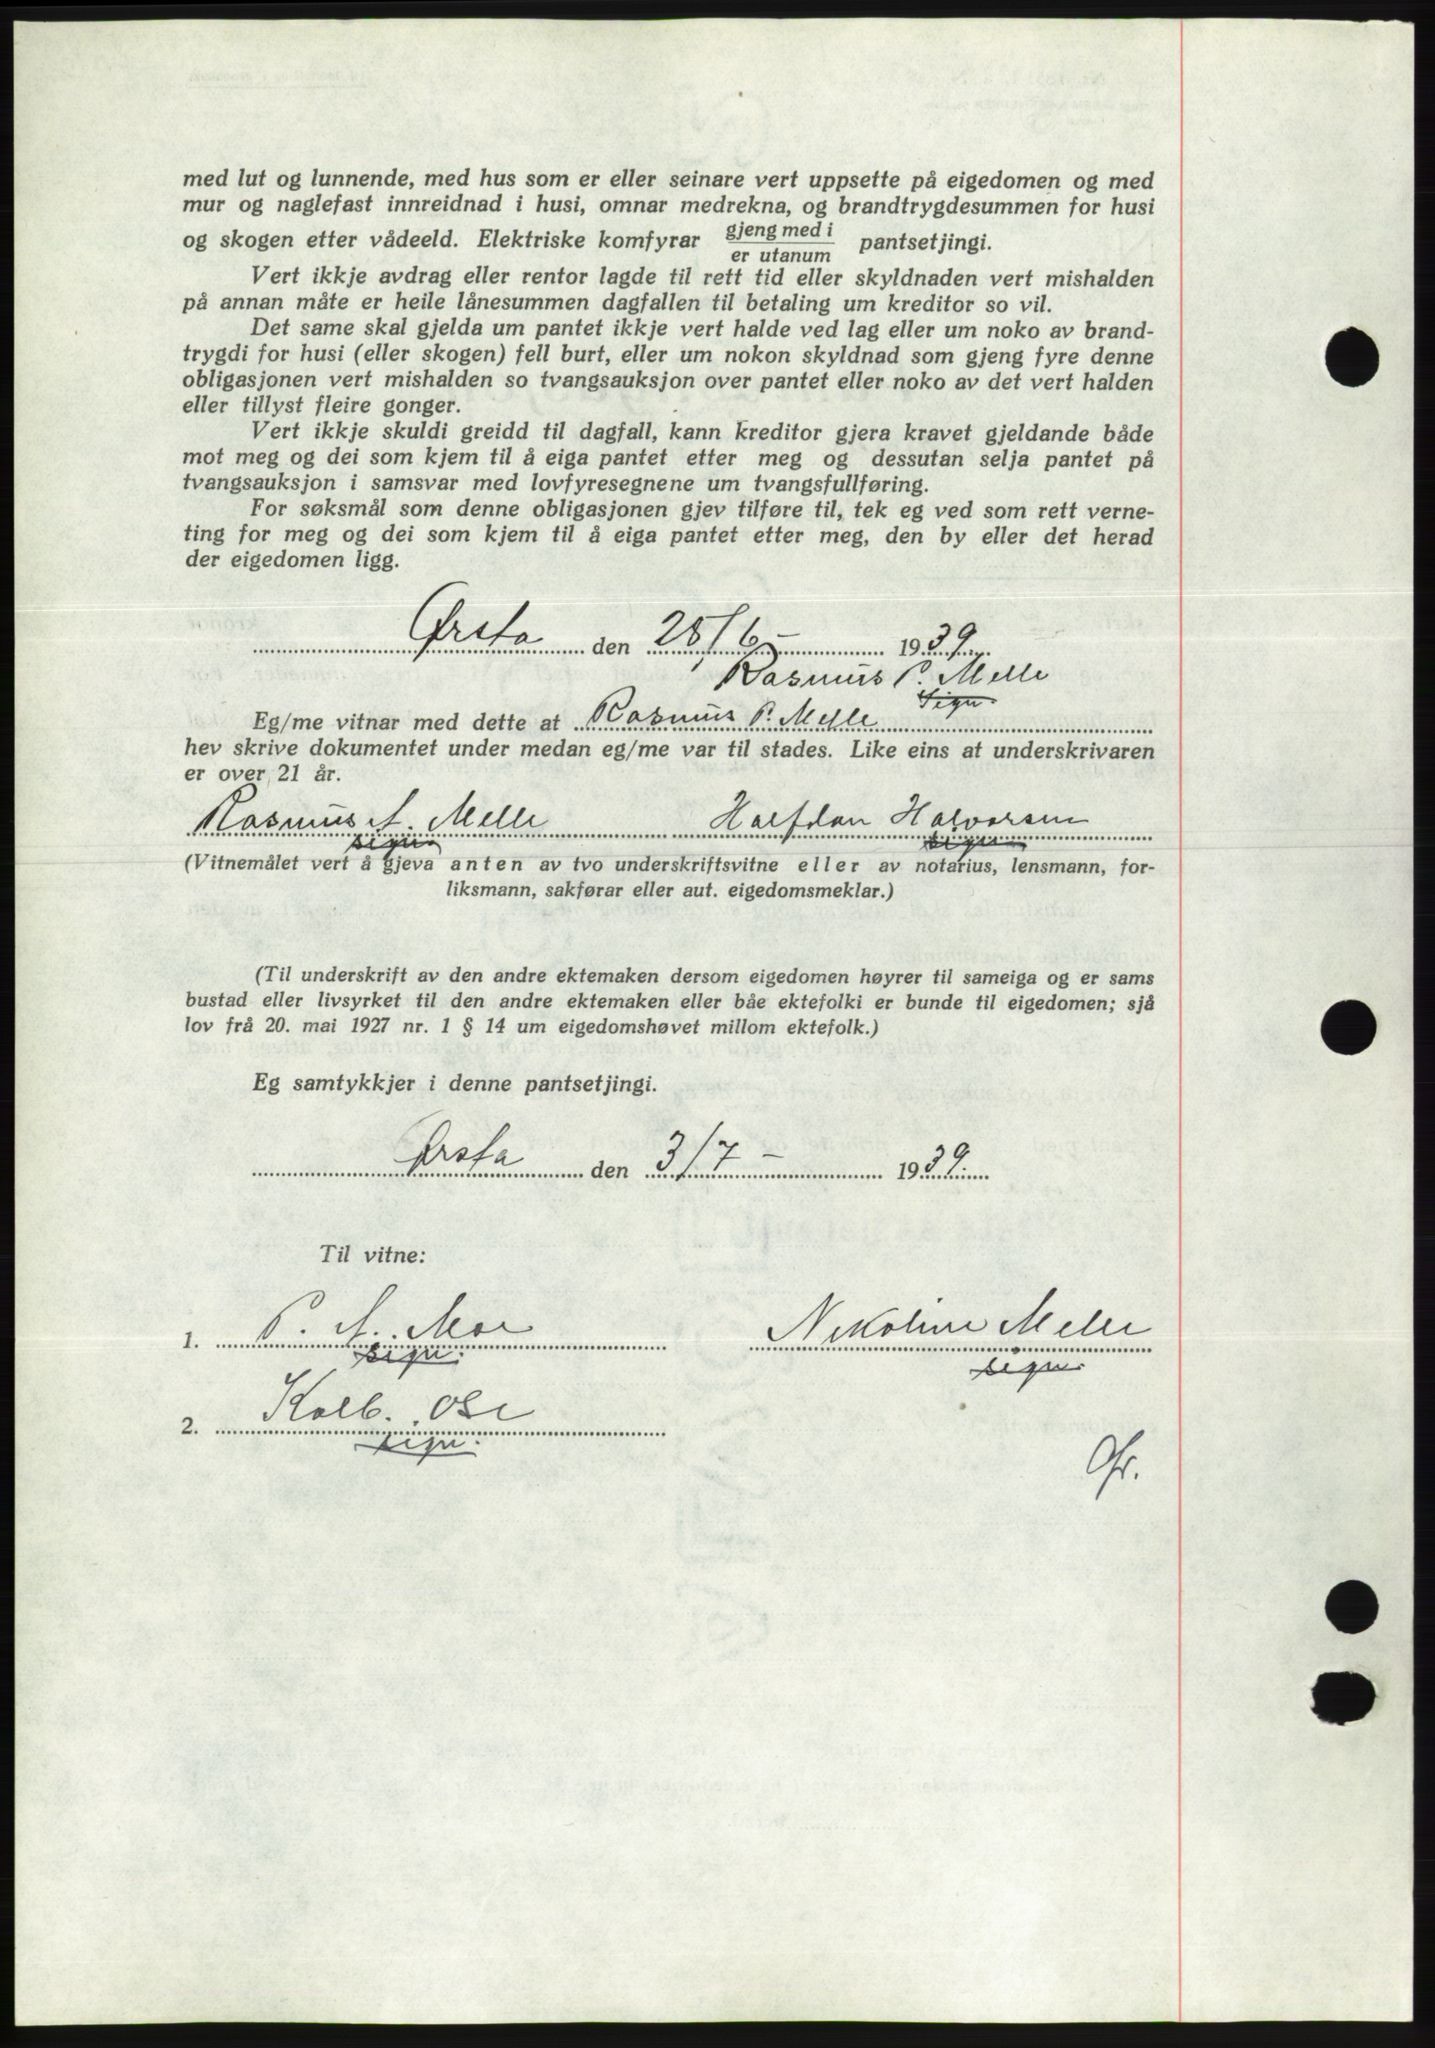 med lut og lunnende, med hus som er eller seinare vert uppsette på eigedomen og med
mur og naglefast innreidnad i husi, omnar medrekna, og brandtrygdesummen for husi
og skogen etter vådeeld. Elektriske komfyrar gjeng med i / er utanum pantsetjingi.
Vert ikkje avdrag eller rentor lagde til rett tid eller skyldnaden vert mishalden
på annan måte er heile lånesummen dagfallen til betaling um kreditor so vil.
Det same skal gjelda um pantet ikkje vert halde ved lag eller um noko av brand-
trygdi for husi (eller skogen) fell burt, eller um nokon skyldnad som gjeng fyre denne
obligasjonen vert mishalden so tvangsauksjon over pantet eller noko av det vert halden
eller tillyst fleire gonger.
Vert ikkje skuldi greidd til dagfall, kann kreditor gjera kravet gjeldande både
mot meg og dei som kjem til å eiga pantet etter meg og dessutan selja pantet på
tvangsauksjon i samsvar med lovfyresegnene um tvangsfullføring.
For søksmål som denne obligasjonen gjev tilføre til, tek eg ved som rett verne-
ting for meg og dei som kjem til å eiga pantet etter meg, den by eller det herad
der eigedomen ligg.
Ørsta den 28/6- 1939
Rasmus P. Melle
sign
Eg/me vitnar med dette at Rasmus P. Melle
hev skrive dokumentet under medan eg/me var til stades. Like eins at underskrivaren
er over 21 år.
Rasmus A. Melle Halfdan Halvorsen
sign sign
(Vitnemålet vert å gjeva anten av tvo underskriftsvitne eller av notarius, lensmann, for-
liksmann, sakførar eller aut. eigedomsmeklar.)
(Til underskrift av den andre ektemaken dersom eigedomen høyrer til sameiga og er sams
bustad eller livsyrket til den andre ektemaken eller båe ektefolki er bunde til eigedomen; sjå
lov frå 20. mai 1927 nr. 1 § 14 um eigedomshøvet millom ektefolk.)
Eg samtykkjer i denne pantsetjingi.
Ørsta den 3/7 - 1939.
Til vitne:
1. P. A. Moe Nikoline Melle
sign. sign.
2. Kolb. Ose
sign.